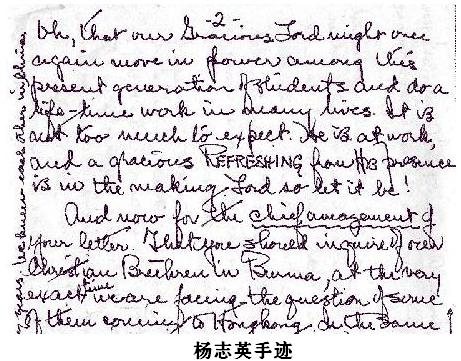 -2-
Oh, that our Gracious Lord might once
again move in power among this
present generation of students and do a
life-time work in many lives. It is
not too much to expect. He is at work,
and a gracious REFRESHING from His presence
is in the making. Lord so let it be!
And now for the chief amazement of
your letter. That you should inquire of our
Christian Brethren in Burma, at the very
exact time we are facing the question of some
of them coming to Hongkong. In the same
years between each other in China
杨志英手迹